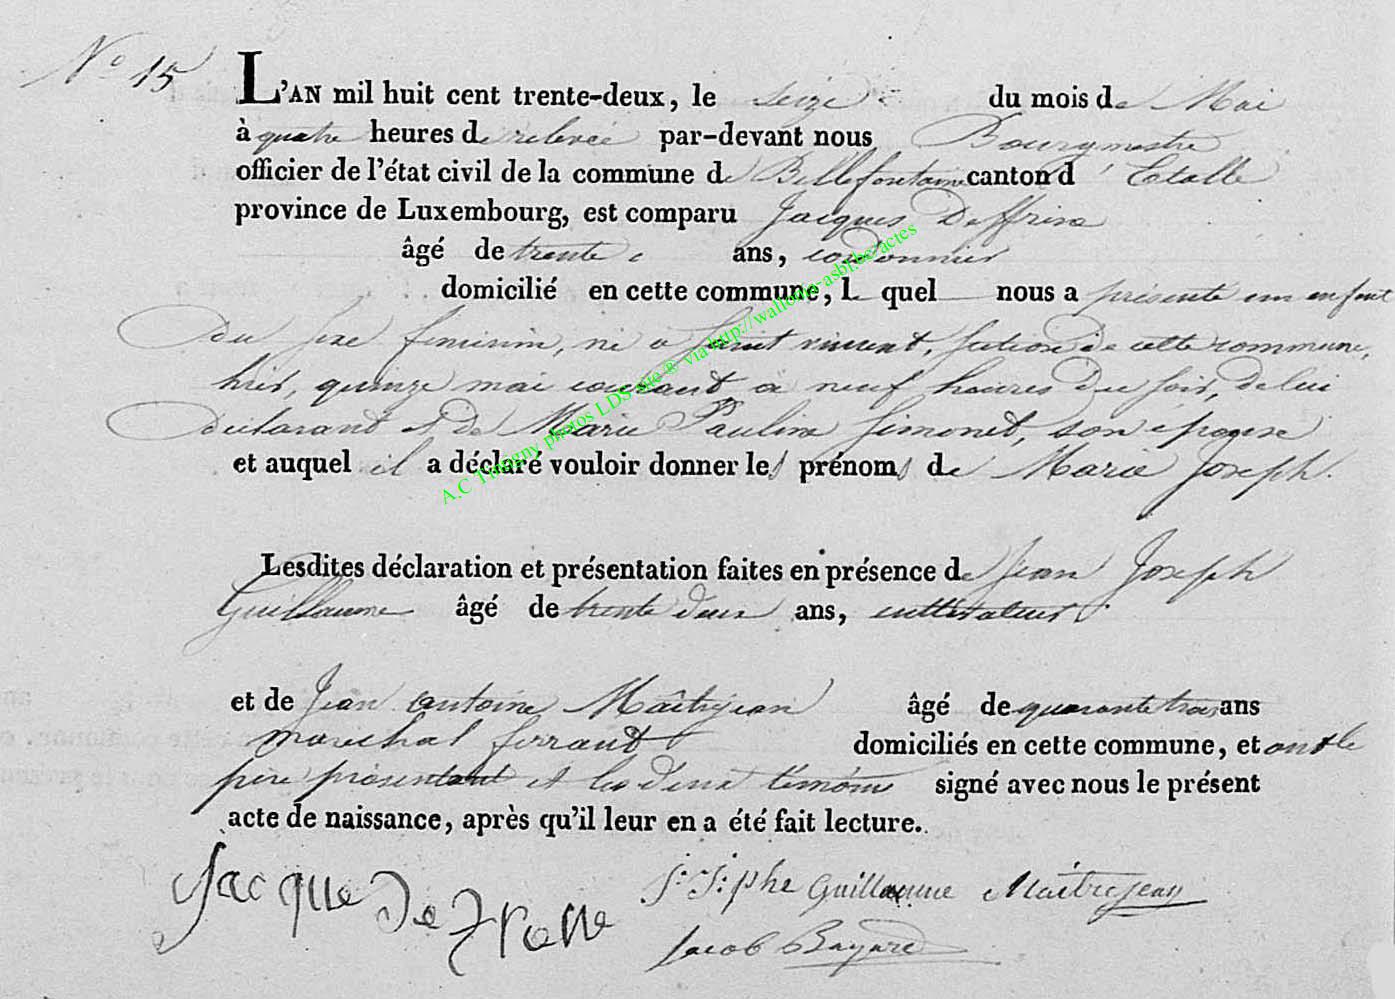 N° 15
L'AN mil huit cent trente-deux, le seize du mois de Mai
à quatre heures de relevée par-devant nous Bourgmestre
officier de l'état civil de la commune de Bellefontaine canton d'Etalle
province de Luxembourg, est comparu Jacques Deffrise
âgé de trente ans, cordonnier
domicilié en cette commune, le quel nous a présenté un enfant
du sexe féminin, né à vincent, section de cette commune,
hier, quinze mai courant à neuf heures du soir, de lui
déclarant et de Marie Pauline Simonet, son épouse
et auquel il a déclaré vouloir donner les prénoms de Marie Joseph.
Lesdites déclaration et présentation faites en présence de Jean Joseph
Guillaume âgé de trente deux ans, cultivateur
et de Jean antoine Maîtrejean âgé de quarante trois ans
marechal ferrant domiciliés en cette commune, et ont le
père présentant et les deux témoins signé avec nous le présent
acte de naissance, après qu'il leur en a été fait lecture.
Jacque
J: J:phe Guillaume Maitrejean
Jacob Bayard
A.C Tintigny photos LDS site ® via http://wallonia-asbl.be/actes